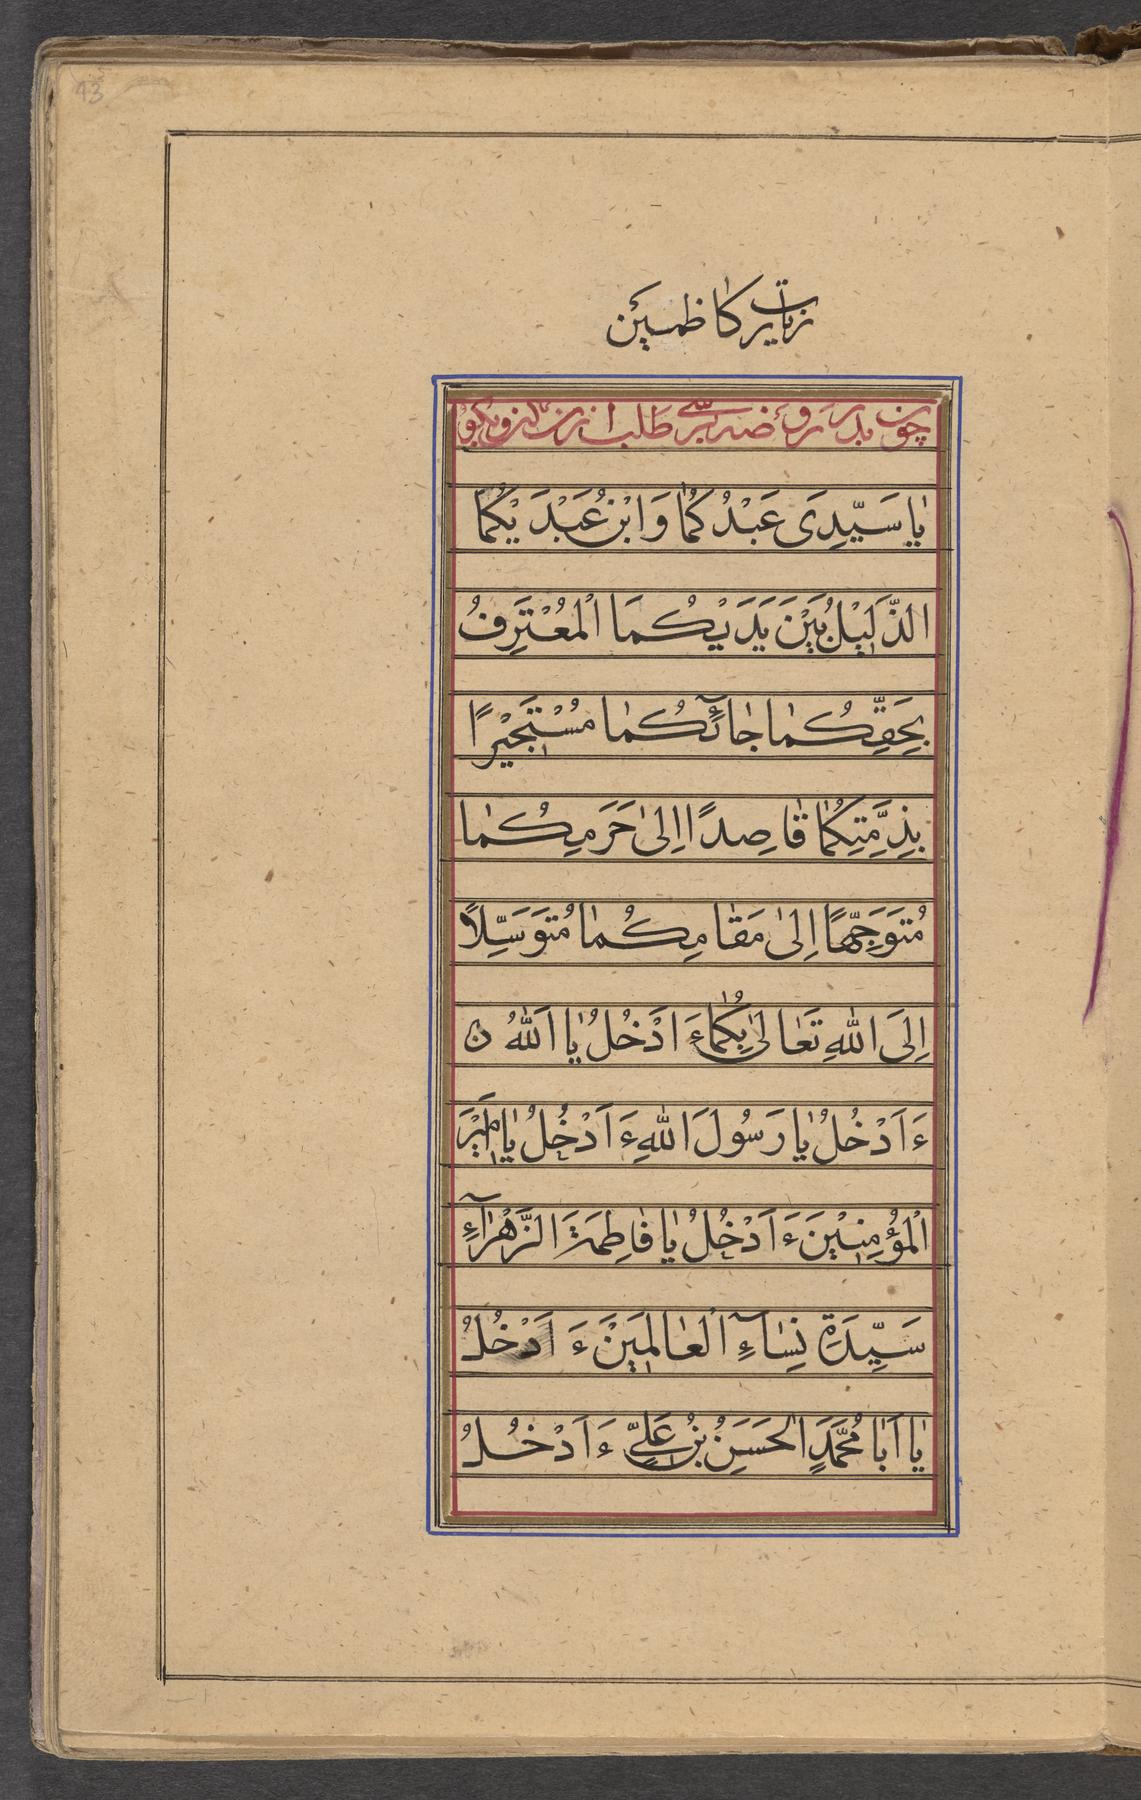 زیارت کاظمیَن
چون بدر روضه رسی طلب اذن کن و بکو
یٰا سَیِّدِیَ عَبْدُکُمٰا وَابْنُ عَبْدَیْکُمٰا
الذَّلیٖلُ بَیْنَ یَدَیْکُمَا الْمُعْتَرِفُ
بِحَقِّکُمٰا جٰآئَکُمٰا مُسْتَجیٖرًا
بِذِمَّتِکُمٰا قٰاصِدًا اِلیٰ حَرَمِکُمٰا
مُتَوَجِّهًا اِلیٰ مَقٰامِکُمٰا مُتَوَسِّلًا
اِلَی اللّٰهِ تَعٰالیٰ بِکُمٰا ءَاَدْخُلُ یٰا اَللّٰهُ
ءَاَدْخُلُ یٰا رَسُولَ اللّٰهِ ءَاَدْخُلُ یٰا اَمیٖرَ
الْمُؤْمِنیٖنَ ءَاَدْخُلُ یٰا فٰاطِمَةَ الزَّهْرٰآءِ
سَیِّدَةِ نِسٰآءِ الْعٰالَمیٖنَ ءَاَدْخُلُ
یٰا اَبٰا مُحَمَّدٍ الْحَسَنِ بْنِ عَلِیٍّ ءَاَدْخُلُ
93